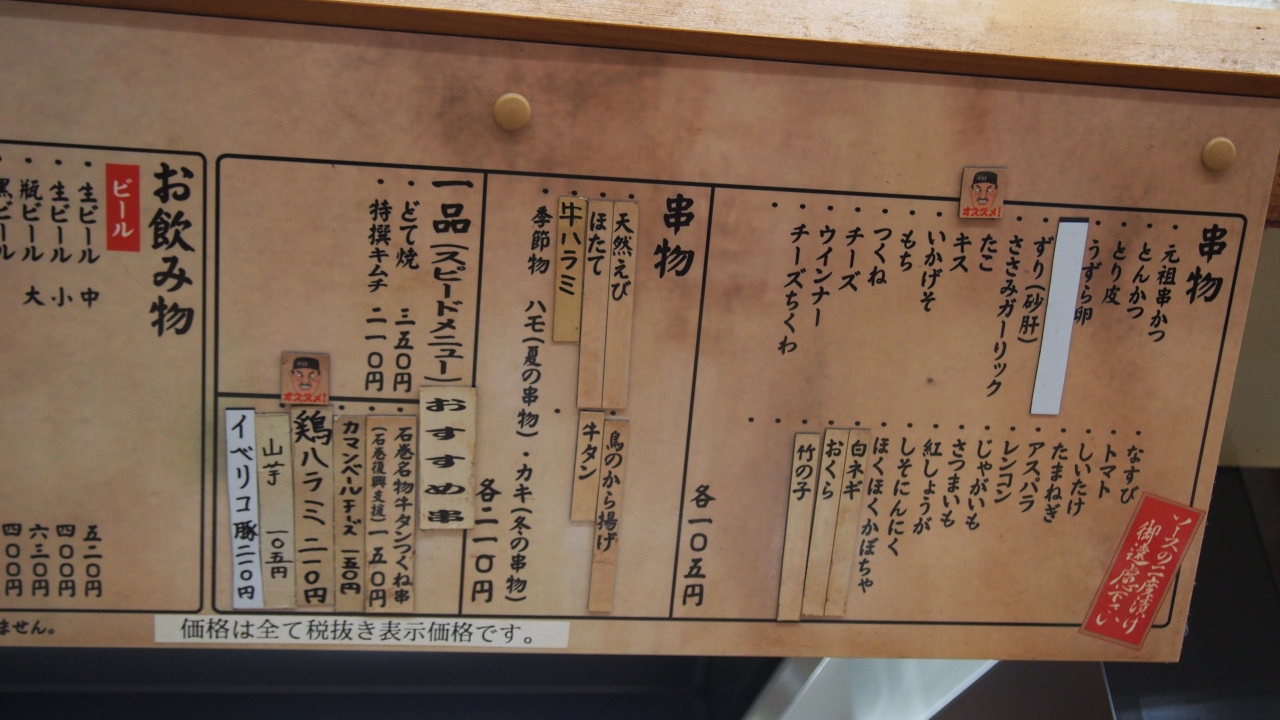 串物
・元祖串かつ
・とんかつ
・とり皮
・うずら卵
・ずり(砂肝)
・ささみガーリック
・たこ
オススメ!
・キス
・いかげそ
・もち
・つくね
・チーズ
・ウインナー
・チーズちくわ
・なすび
・トマト
・しいたけ
・たまねぎ
・アスパラ
・レンコン
・じゃがいも
・さつまいも
・紅しょうが
・しそにんにく
・ほくほくかぼちゃ
・白ネギ
・おくら
・竹の子
各一〇五円
ソースの二度漬け
御遠慮下さい
串物
・天然えび
・ほたて
牛ハラミ
・季節物 ハモ(夏の串物)・カキ(冬の串物)
鳥のから揚げ
牛タン
各二一〇円
一品(スピードメニュー)
・どて焼 三五〇円
・特撰キムチ 二一〇円
おすすめ串
石巻名物牛タンつくね串
(石巻復興支援)一五〇円
カマンベールチーズ 一五〇円
オススメ!
鶏ハラミ 二一〇円
山芋 一〇五円
イベリコ豚 二一〇円
お飲み物
ビール
・生ビール 中 五二〇円
・生ビール 小 四〇〇円
・瓶ビール 大 六三〇円
・黒ビール 四〇〇円
価格は全て税抜き表示価格です。
ません。